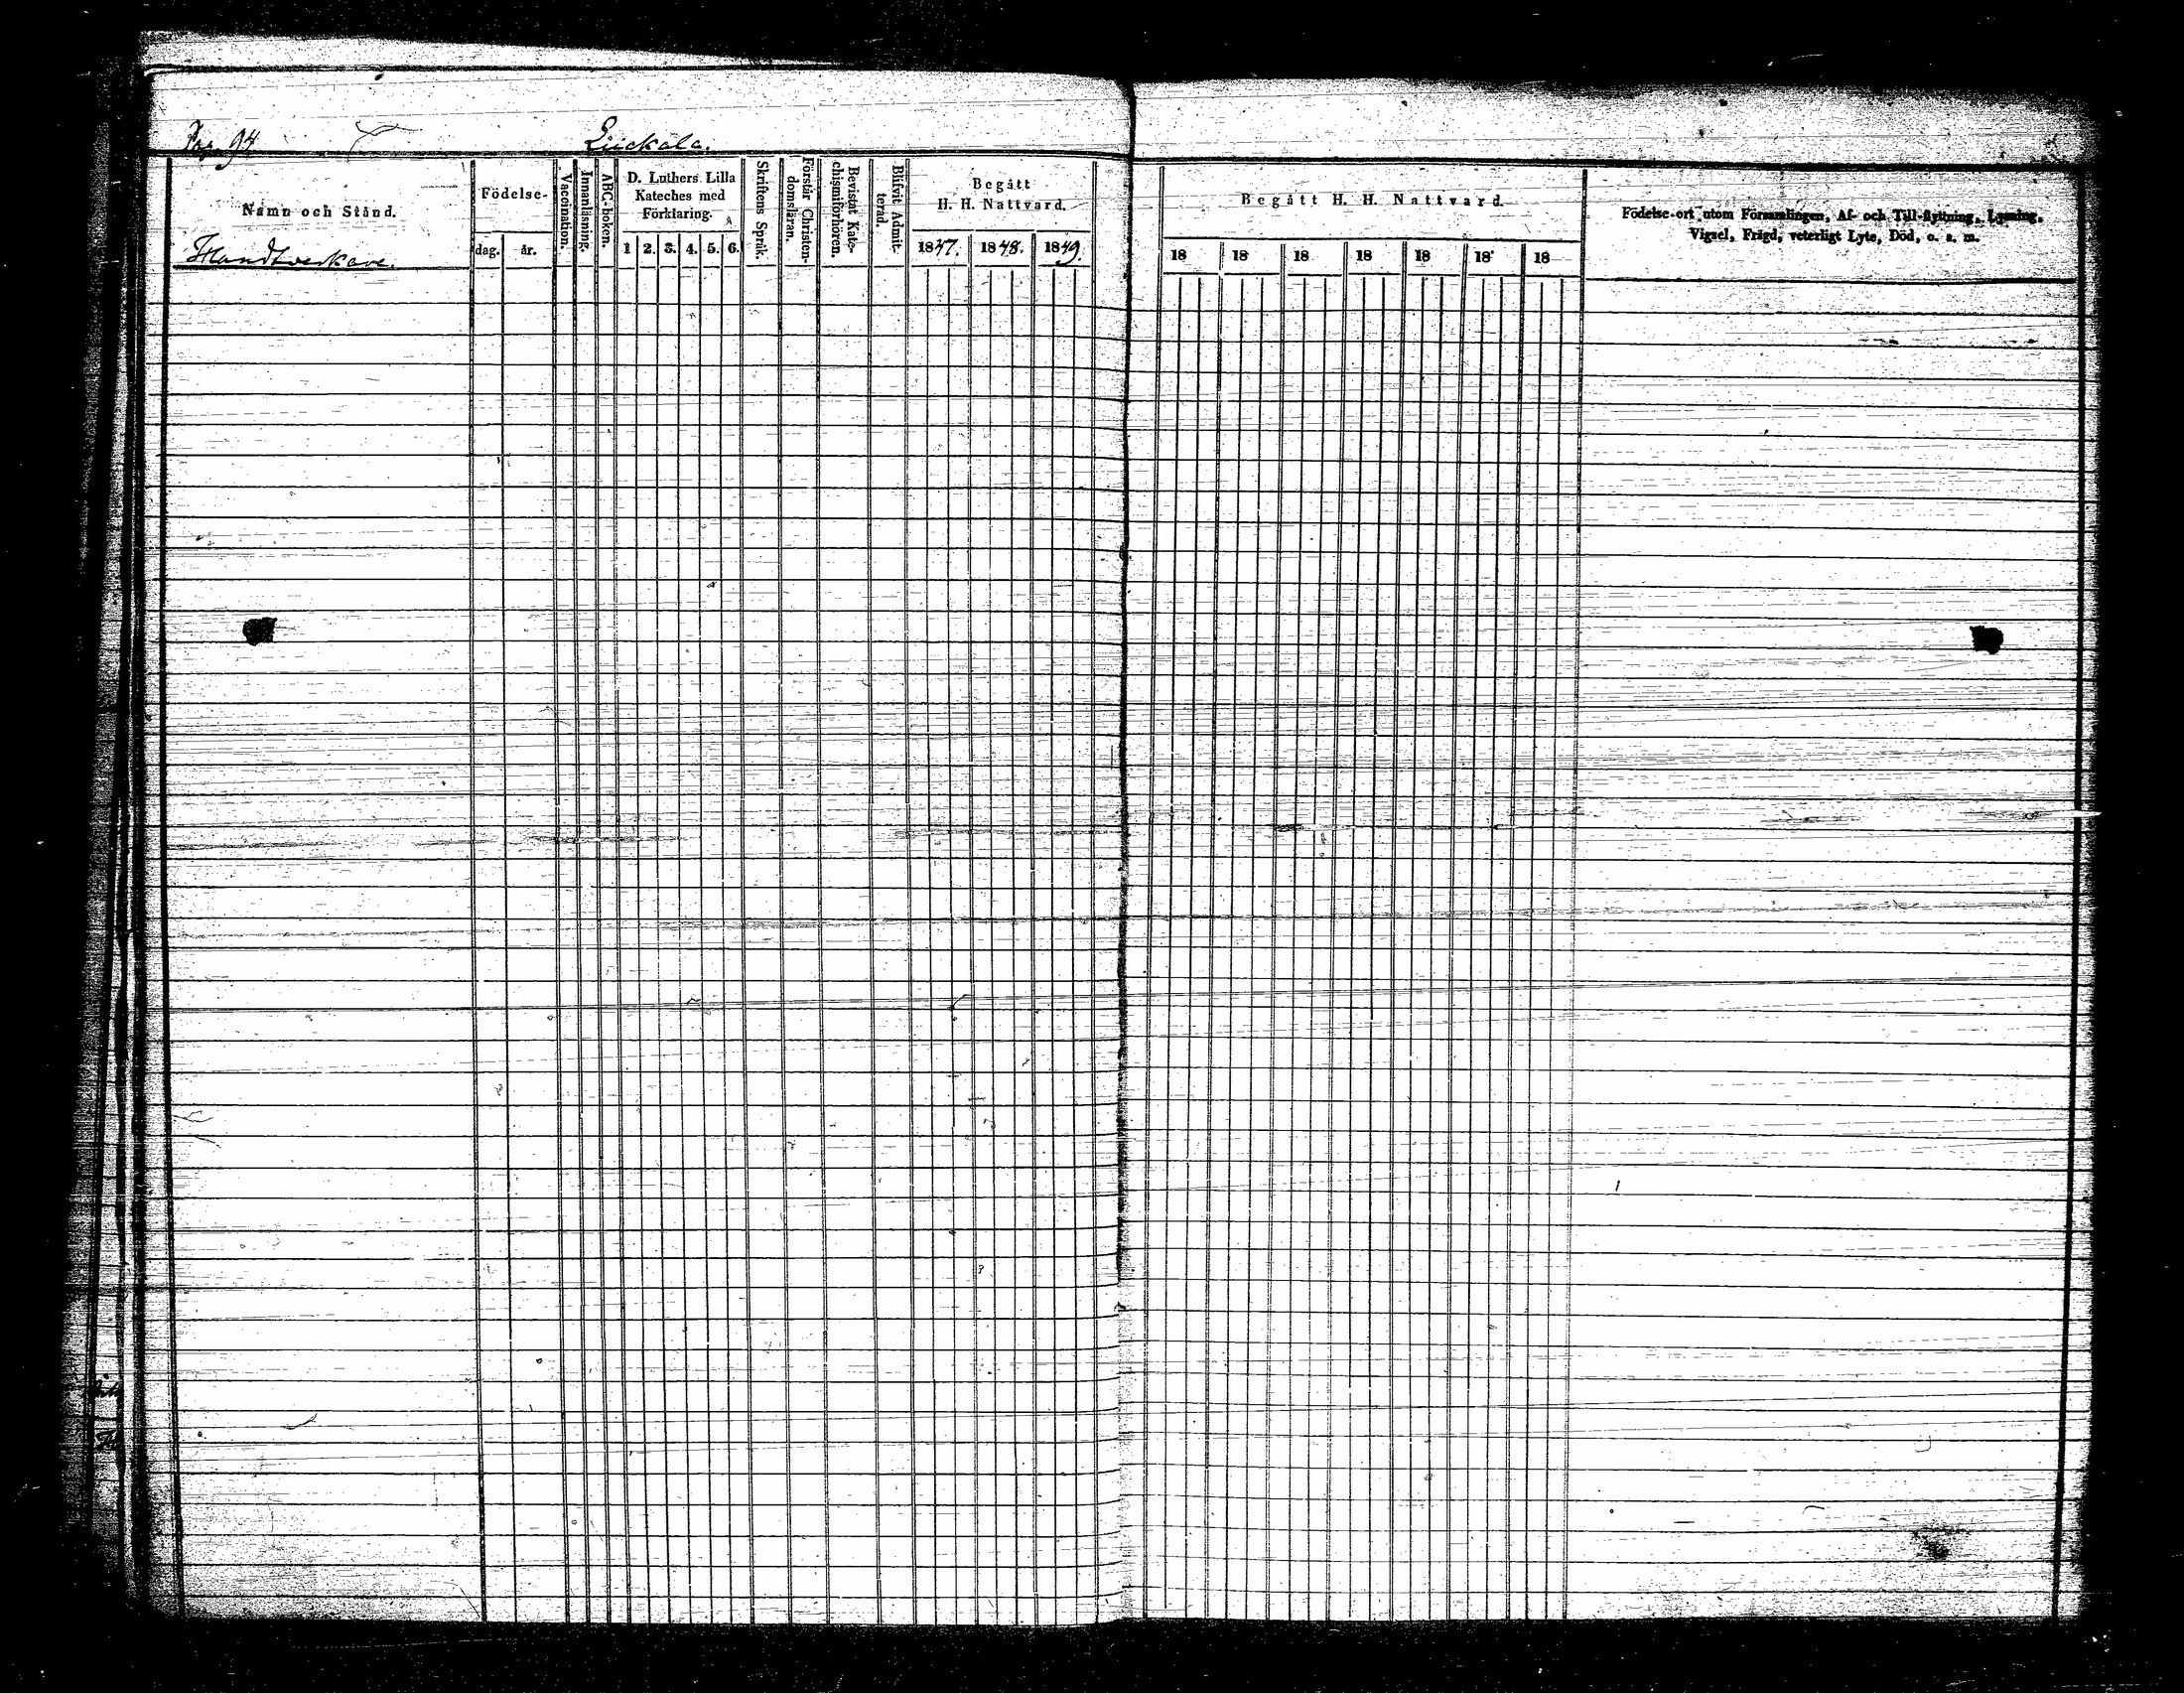 Pag. 94
Luckala.
Namn och Stånd.
Handtverkare.
Födelse-
dag. år.
Vaccination.
Innanläsning.
ABC-boken.
D. Luthers Lilla
Kateches med
Förklaring.
1 2. 3. 4. 5. 6.
Skriftens Språk.
Förstår Christen-
domsläran.
Bevistat Kate-
chismiförhören.
Blifvit Admit-
terad.
Begått
H. H. Nattvard.
1847. 1848. 1849.
Begått H. H. Nattvard.
18 18 18 18 18 18 18
Födelse-ort utom Församlingen, Af- och Till-flyttning, Lysning,
Vigsel, Frägd, veterligt Lyte, Död, o. s. m.